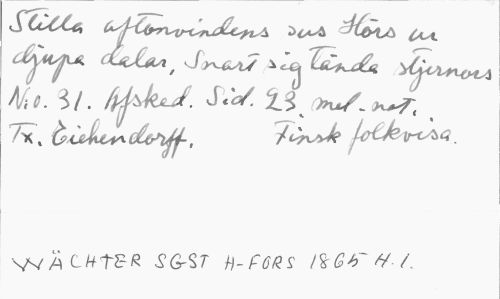 Stilla aftonvindens sus Hörs ur
djupa dalar, Snart sig tända stjernors
N:o. 31. Afsked. Sid. 23. mel. not.
Tx. Eichendorff. Finsk folkvisa.
WÄCHTER SGST H-FORS 1865 H.1.